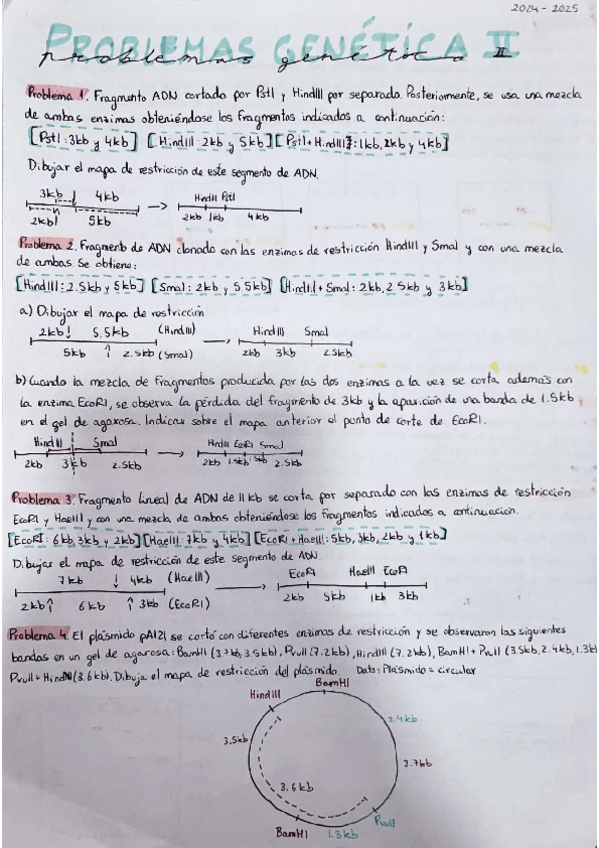 2024 - 2025
PROBLEMAS GENÉTICA II
problemas genética II
Problema 1. Fragmento ADN cortado por PstI y HindIII por separado. Posteriormente, se usa una mezcla
de ambas enzimas obteniéndose los fragmentos indicados a continuación:
[PstI: 3kb y 4kb] [HindIII: 2kb y 5kb] [PstI + HindIII: 1kb, 2kb y 4kb]
Dibujar el mapa de restricción de este segmento de ADN.
3kb 4kb HindIII PstI
2kb 5kb 2kb 1kb 4kb
Problema 2. Fragmento de ADN clonado con las enzimas de restricción HindIII y SmaI y con una mezcla
de ambas se obtiene:
[HindIII: 2.5kb y 5kb] [SmaI: 2kb y 5,5kb] [HindIII + SmaI: 2kb, 2.5kb y 3kb]
a) Dibujar el mapa de restricción
2kb 5.5kb (HindIII) HindIII SmaI
5kb 2.5kb (SmaI) 2kb 3kb 2.5kb
b) Cuando la mezcla de fragmentos producida por las dos enzimas a la vez se corta además con
la enzima EcoRI, se observa la pérdida del fragmento de 3kb y la aparición de una banda de 1.5kb
en el gel de agarosa. Indicar sobre el mapa anterior el punto de corte de EcoRI.
HindIII SmaI HindIII EcoRI SmaI
2kb 3kb 2.5kb 2kb 1.5kb 1.5kb 2.5kb
Problema 3. Fragmento lineal de ADN de 11 kb se corta por separado con las enzimas de restricción
EcoRI y HaeIII y con una mezcla de ambas obteniéndose los fragmentos indicados a continuación.
[EcoRI: 6kb, 3kb y 2kb] [HaeIII: 7kb y 4kb] [EcoRI + HaeIII: 5kb, 3kb, 2kb y 1kb]
Dibujar el mapa de restricción de este segmento de ADN.
7kb 4kb (HaeIII) EcoRI HaeIII EcoRI
2kb 6kb 3kb (EcoRI) 2kb 5kb 1kb 3kb
Problema 4. El plásmido pA121 se cortó con diferentes enzimas de restricción y se observaron las siguientes
bandas en un gel de agarosa: BamHI (3.7kb, 3.5kb), PvuII (7.2kb), HindIII (7.2kb), BamHI + PvuII (3.5kb, 2.4kb, 1.3kb
PvuII + HindIII (3.6kb). Dibuja el mapa de restricción del plásmido. Dato: Plásmido = circular
BamHI
HindIII
2.4kb
3.5kb
3.7kb
3.6kb
PvuII
BamHI 1.3kb